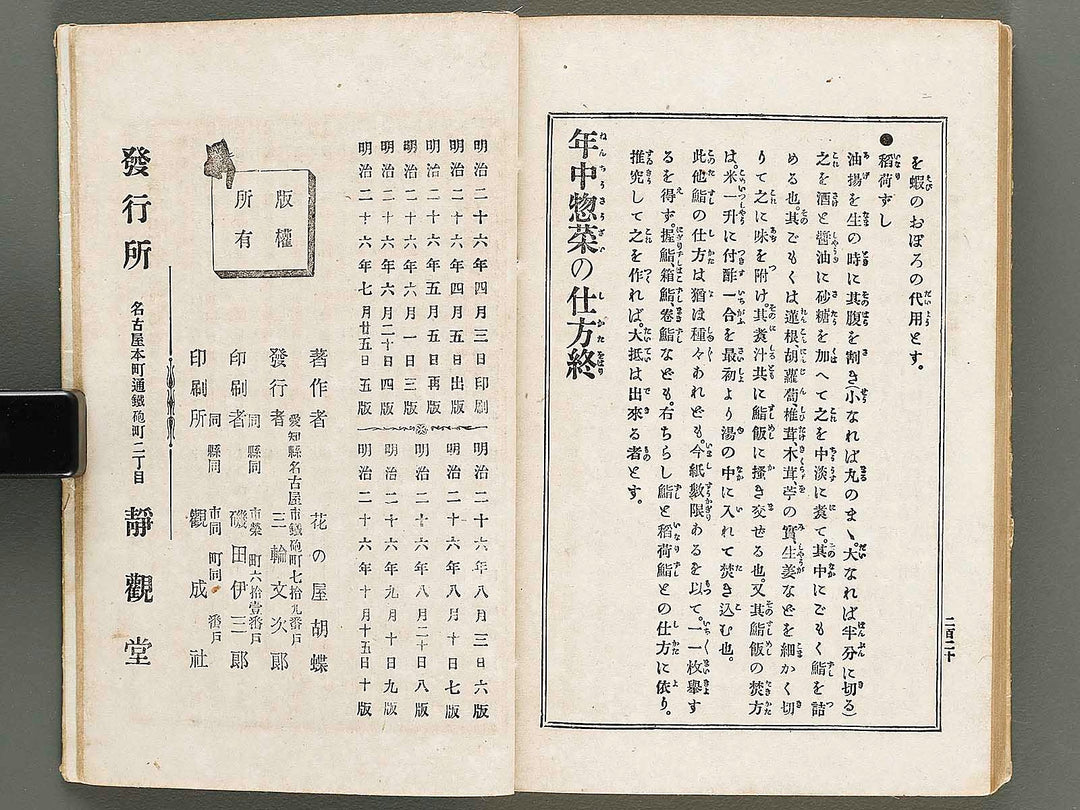 二百二十
を蝦のおぼろの代用とす。
●稻荷ずし
油揚を生の時に其腹を割き(小なれば丸のまゝ、大なれば半分に切る)
之を酒と醬油に砂糖を加へて之を中淡に煑て。其中にごもく鮨を詰
める也。其ごもくは蓮根、胡蘿蔔、椎茸、木茸、苧の實、生姜などを細かく切
りて之に味を附け。其煑汁共に鮨飯に搔き交せる也。又其鮨飯の焚方
は。米一升に付酢一合を最初より湯の中に入れて焚き込む也。
此他鮨の仕方は猶ほ種々あれども。今紙數限あるを以て。一一枚擧す
るを得ず。握鮨、箱鮨、卷鮨なども。右ちらし鮨と稻荷鮨との仕方に依り。
推究して之を作れば。大抵は出來る者とす。
年中惣菜の仕方終
明治二十六年四月三日印刷
明治二十六年四月五日出版
明治二十六年五月五日再版
明治二十六年六月一日三版
明治二十六年六月二十日四版
明治二十六年七月廿五日五版
明治二十六年八月三日六版
明治二十六年八月十日七版
明治二十六年八月二十日八版
明治二十六年九月十日九版
明治二十六年十月十五日十版
版權
所有
著作者 花の屋胡蝶
愛知縣名古屋市鐵砲町七拾九番戶
發行者 三輪文次郞
同縣同市榮町六拾壹番戶
印刷者 磯田伊三郞
同縣同市同町同番戶
印刷所 觀成社
發行所 名古屋本町通鐵砲町二丁目 靜觀堂